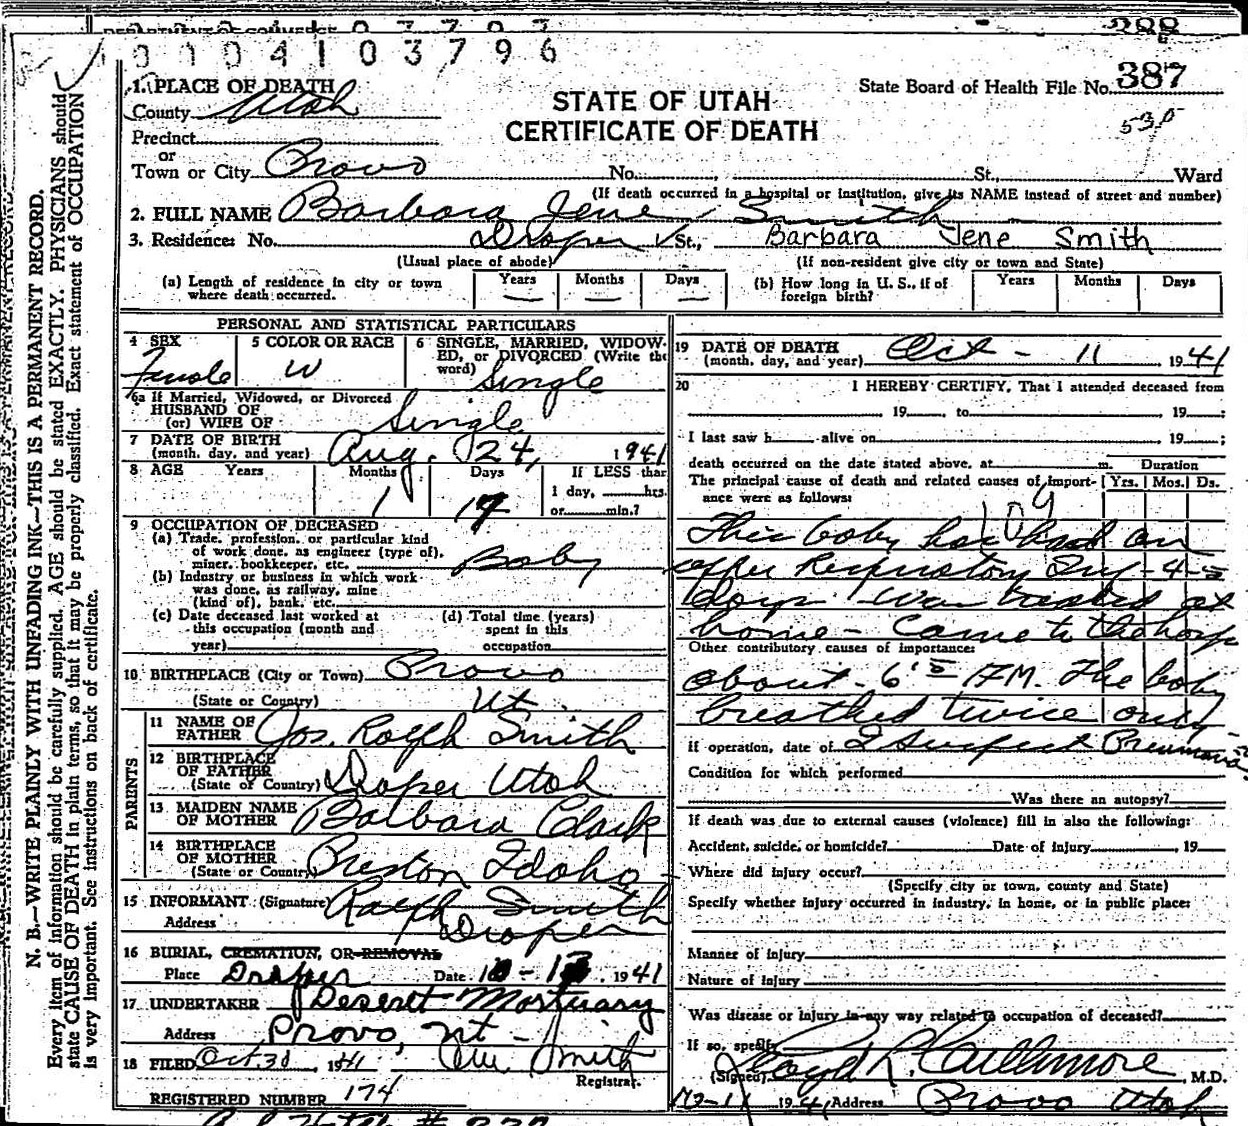 0 0 0 4 1 0 3 7 9 6
288
1. PLACE OF DEATH
County Utah
State Board of Health File No. 387
STATE OF UTAH
CERTIFICATE OF DEATH
530
Precinct
or
Town or City Provo No. , St., Ward
(If death occurred in a hospital or institution, give its NAME instead of street and number)
2. FULL NAME Barbara Jene Smith
3. Residence: No. Draper St., Barbara Jene Smith
(Usual place of abode) (If non-resident give city or town and State)
(a) Length of residence in city or town where death occurred. Years — Months — Days —
(b) How long in U. S., if of foreign birth? Years Months Days
PERSONAL AND STATISTICAL PARTICULARS
4 SEX Female
5 COLOR OR RACE W
6 SINGLE, MARRIED, WIDOWED, or DIVORCED (Write the word) Single
6a If Married, Widowed, or Divorced
HUSBAND OF
(or) WIFE OF Single
7 DATE OF BIRTH
(month, day, and year) Aug. 24, 1941
8 AGE Years Months 1 Days 17
If LESS than
1 day, hrs.
or min.?
9 OCCUPATION OF DECEASED
(a) Trade, profession, or particular kind
of work done, as engineer (type of),
miner, bookkeeper, etc. Baby
(b) Industry or business in which work
was done, as railway, mine
(kind of), bank, etc.
(c) Date deceased last worked at
this occupation (month and
year)
(d) Total time (years)
spent in this
occupation
10 BIRTHPLACE (City or Town) Provo
(State or Country) Ut.
PARENTS
11 NAME OF
FATHER Jos. Ralph Smith
12 BIRTHPLACE
OF FATHER
(State or Country) Draper Utah
13 MAIDEN NAME
OF MOTHER Barbara Clark
14 BIRTHPLACE
OF MOTHER
(State or Country) Preston Idaho
15 INFORMANT (Signature) Ralph Smith
Address Draper
16 BURIAL, CREMATION, OR REMOVAL
Place Draper Date 10-13, 1941
17 UNDERTAKER Deseret Mortuary
Address Provo, Ut
18 FILED Oct. 30, 1941 Smith
Registrar.
REGISTERED NUMBER 174
19 DATE OF DEATH
(month, day, and year) Oct - 11 1941
20 I HEREBY CERTIFY, That I attended deceased from
19 , to 19 ;
I last saw h alive on 19 ;
death occurred on the date stated above, at m. Duration
The principal cause of death and related causes of importance were as follows: Yrs. Mos. Ds.
109
This baby has had an
upper Respiratory Inf - 4-5
days. Was treated at
home - Came to the hosp
Other contributory causes of importance:
about 6 15 PM. The baby
breathed twice only
If operation, date of I Suspect Pneumonia
Condition for which performed
Was there an autopsy?
If death was due to external causes (violence) fill in also the following:
Accident, suicide, or homicide? Date of injury , 19
Where did injury occur?
(Specify city or town, county and State)
Specify whether injury occurred in industry, in home, or in public place:
Manner of injury
Nature of injury
Was disease or injury in any way related to occupation of deceased?
If so, specify
(Signed) Lloyd L. Cullimore, M.D.
10-11 1941 Address Provo Utah
N. B.—WRITE PLAINLY WITH UNFADING INK—THIS IS A PERMANENT RECORD.
Every item of information should be carefully supplied. AGE should be stated EXACTLY. PHYSICIANS should
state CAUSE OF DEATH in plain terms, so that it may be properly classified. Exact statement of OCCUPATION
is very important. See instructions on back of certificate.